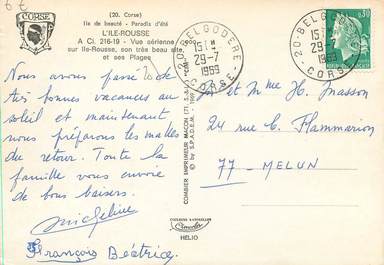 6 €
CORSE
(20. Corse)
Ile de beauté - Paradis d'été
L'ILE-ROUSSE
A Ci. 216-19 - Vue aérienne
sur Ile-Rousse, son très beau site,
et ses Plages
Nous avons passé de
très bonnes vacances au
soleil et maintenant
nous préparons les malles
du retour. Toute la
famille vous envoie
de bons baisers.
Micheline
François Béatrice
COMBIER IMPRIMEUR MACON
© by S.P.A.D.E.M. 1969
COULEURS NATURELLES
HELIO
20-BELGODERE
15H
29-7
1969
CORSE
20-BELGODERE
15H
29-7
1969
CORSE
0,30
et Mme H. Masson
24 rue C. Flammarion
77 - MELUN